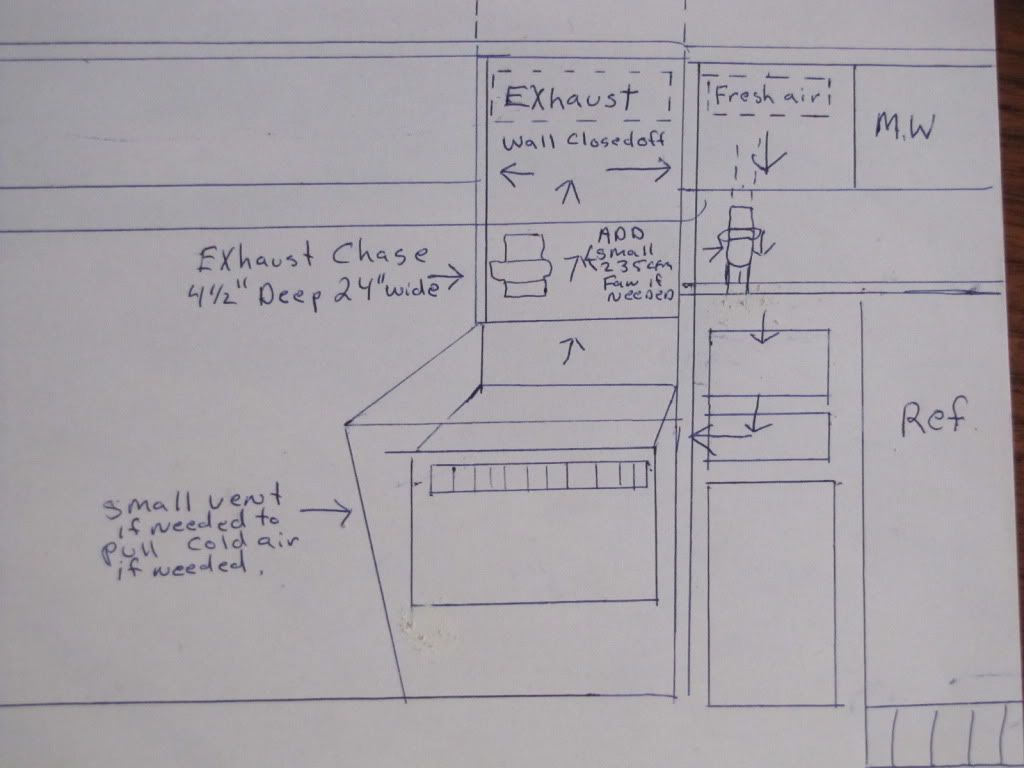 EXhaust
Wall Closedoff
Fresh air
M.W
EXhaust Chase
4½" Deep 24" wide
ADD
small
235cfm
Fan if
needed
Ref.
small vent
if needed to
pull cold air
if needed.